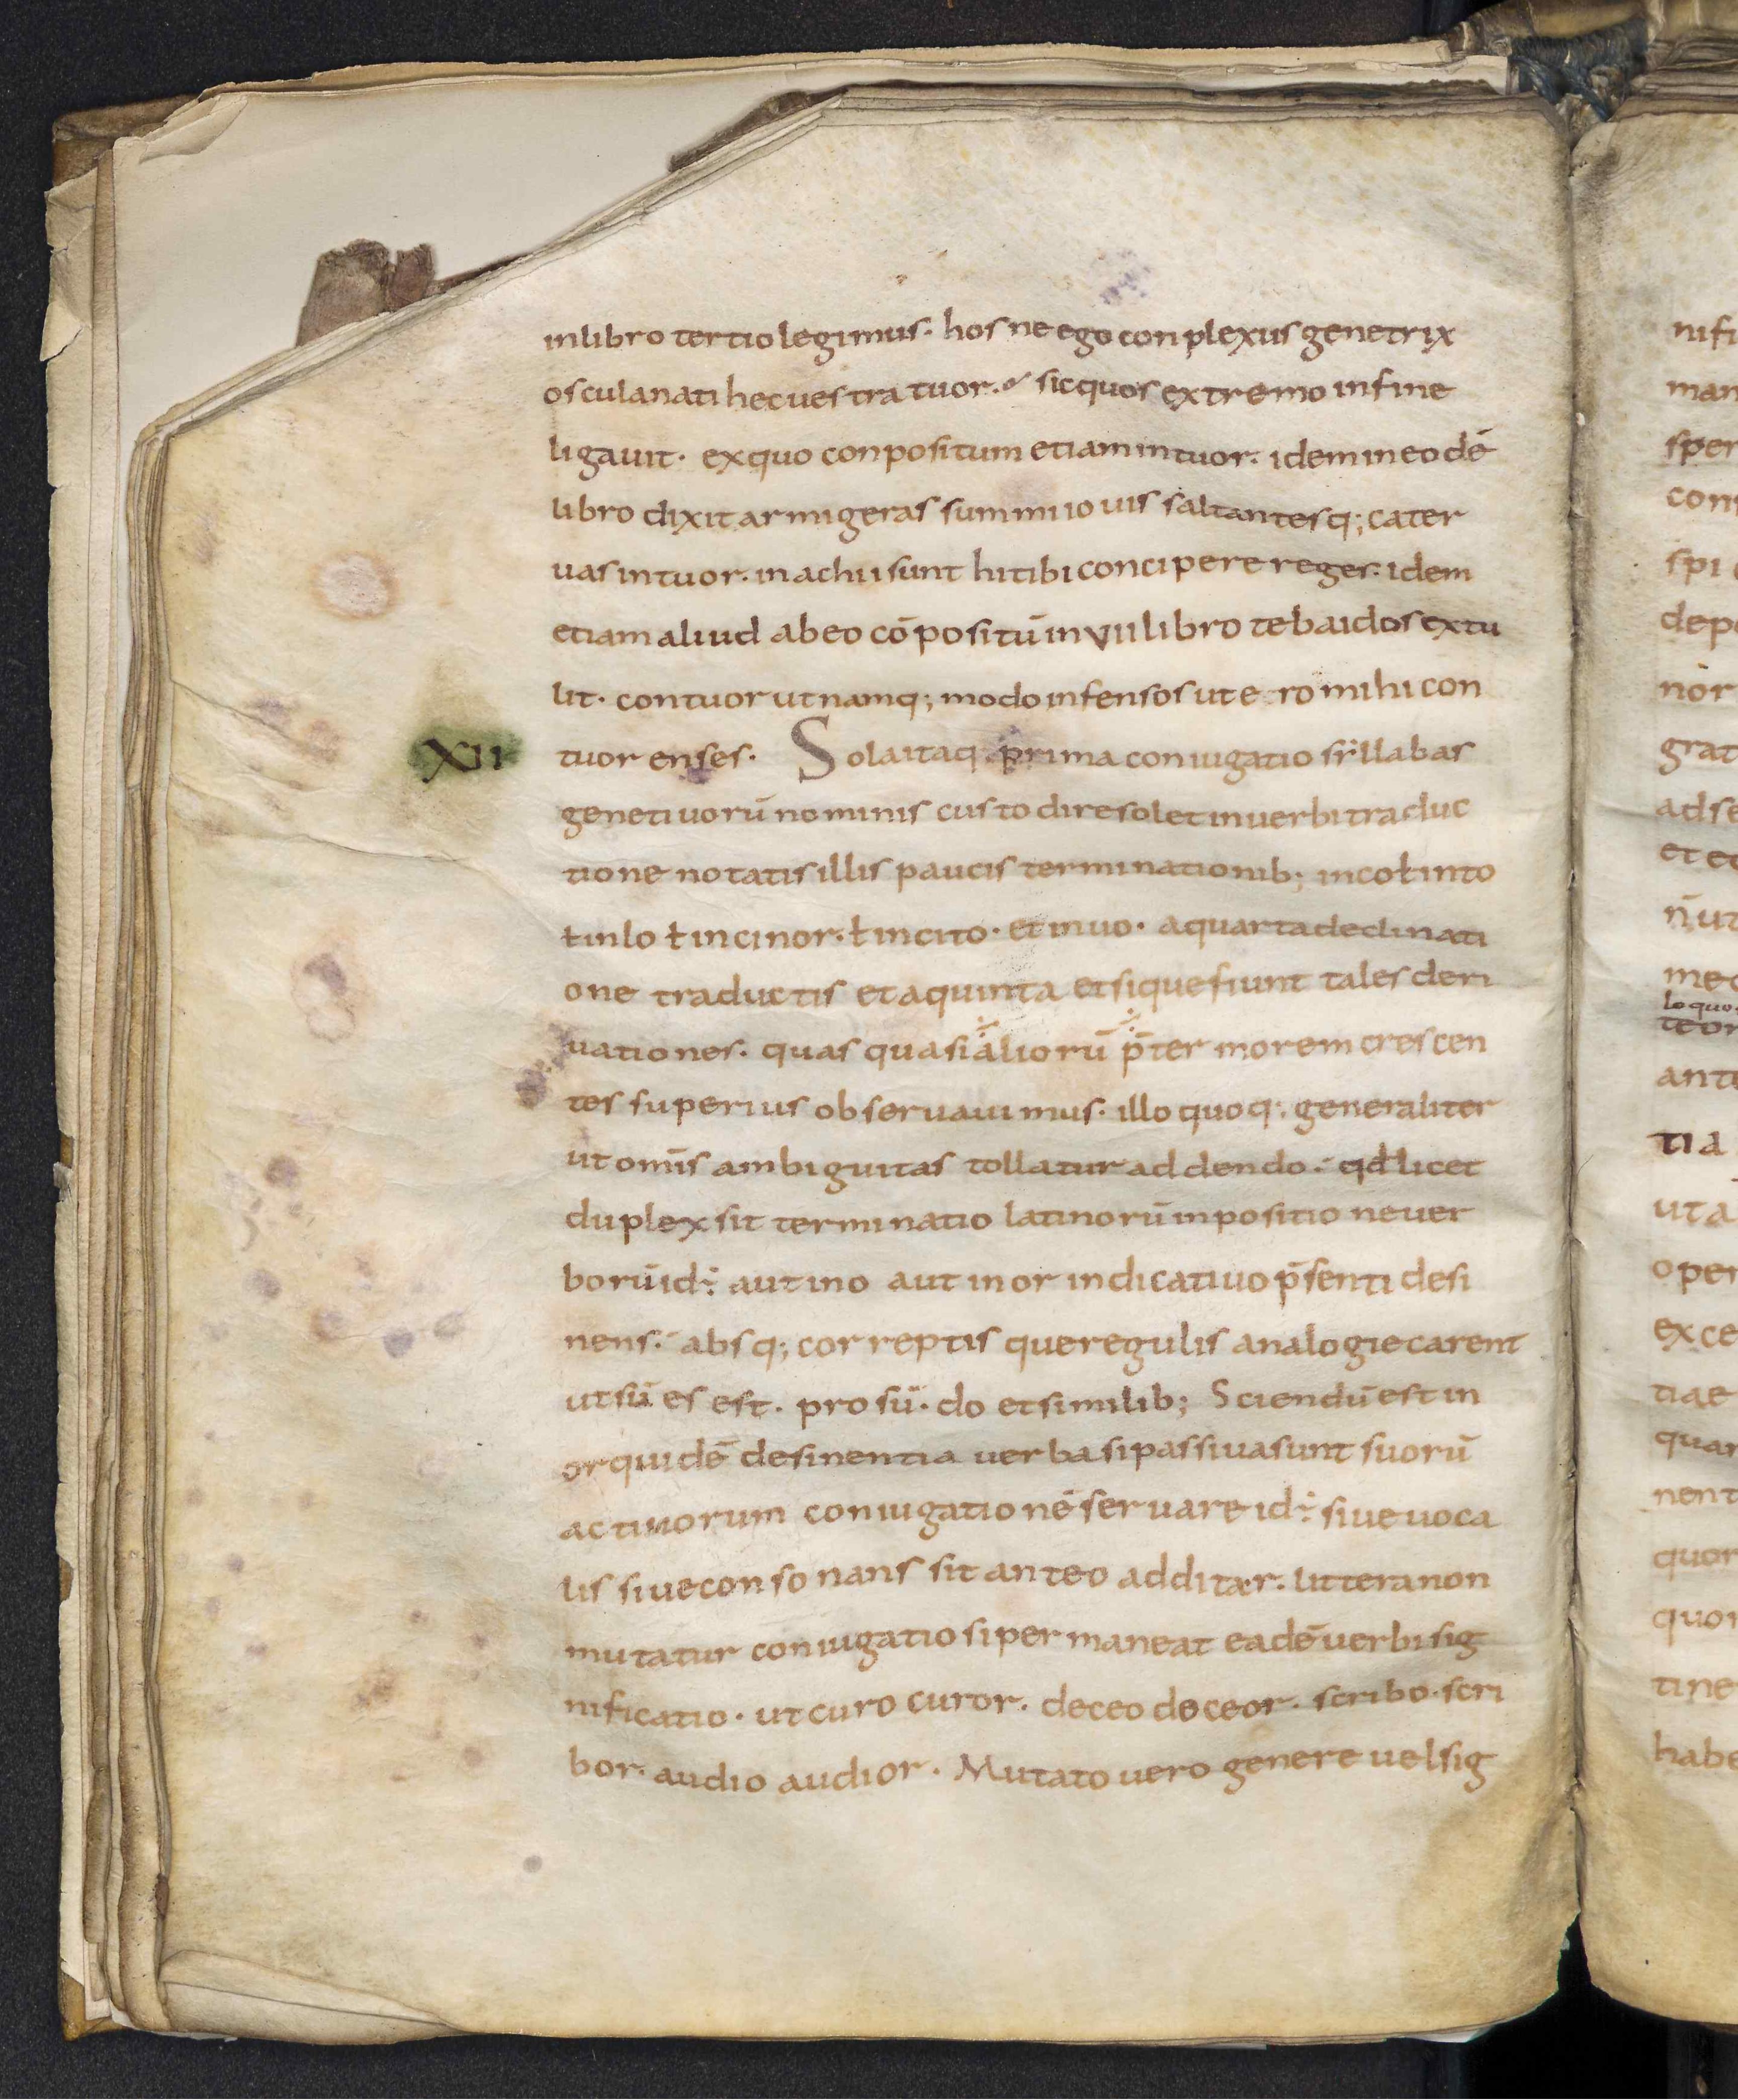 inlibro tertio legimus· hosne ego conplexus genetrix
osculanati hec uestra tuor· sicquos extremo infine
ligauit· exquo conpositum etiam intuor· idem in eodē
libro dixit armigeras summi iouis saltantesq; cater
uas intuor· inachii sunt hi tibi concipere reges· idem
etiam aliud ab eo cōpositū in VII libro tebaidos extu
lit· contuor ut namq; modo infensos utero mihi con
XII tuor enses· Sola itaq; prima coniugatio sẏllabas
genetiuorū nominis custodire solet in uerbi traduc
tione notatis illis paucis terminationib; incoł into
ł inlo ł incinor· ł incito· et in uo· a quarta declinati
one traductis et a quinta et sique fiunt tales deri
uationes· quas quasi aliorū p̄ter morem crescen
tes superius obseruauimus· illo quoq; generaliter
ut omīs ambiguitas tollatur addendo· qđ licet
duplex sit terminatio latinorū inpositione uer
borū id÷ aut ino aut in or indicatiuo p̄senti desi
nens· absq; correptis que regulis analogie carent
ut sū es est· prosū· do et similib; Sciendū est in
or quidē desinentia uerba si passiua sunt suorū
actiuorum coniugationē seruare id÷ siue uoca
lis siue consonans sit ante o additar· littera non
mutatur coniugatio si permaneat eadē uerbi sig
nificatio· ut curo curor· doceo doceor· scribo· scri
bor· audio audior· Mutato uero genere uel sig
nifi
man
sper
con
spi
dep
nor
grat
adse
et
n̄ ut
me
loquo
teor
ant
tia
uta
oper
exce
tiae
quar
nent
quor
quor
tine
habe